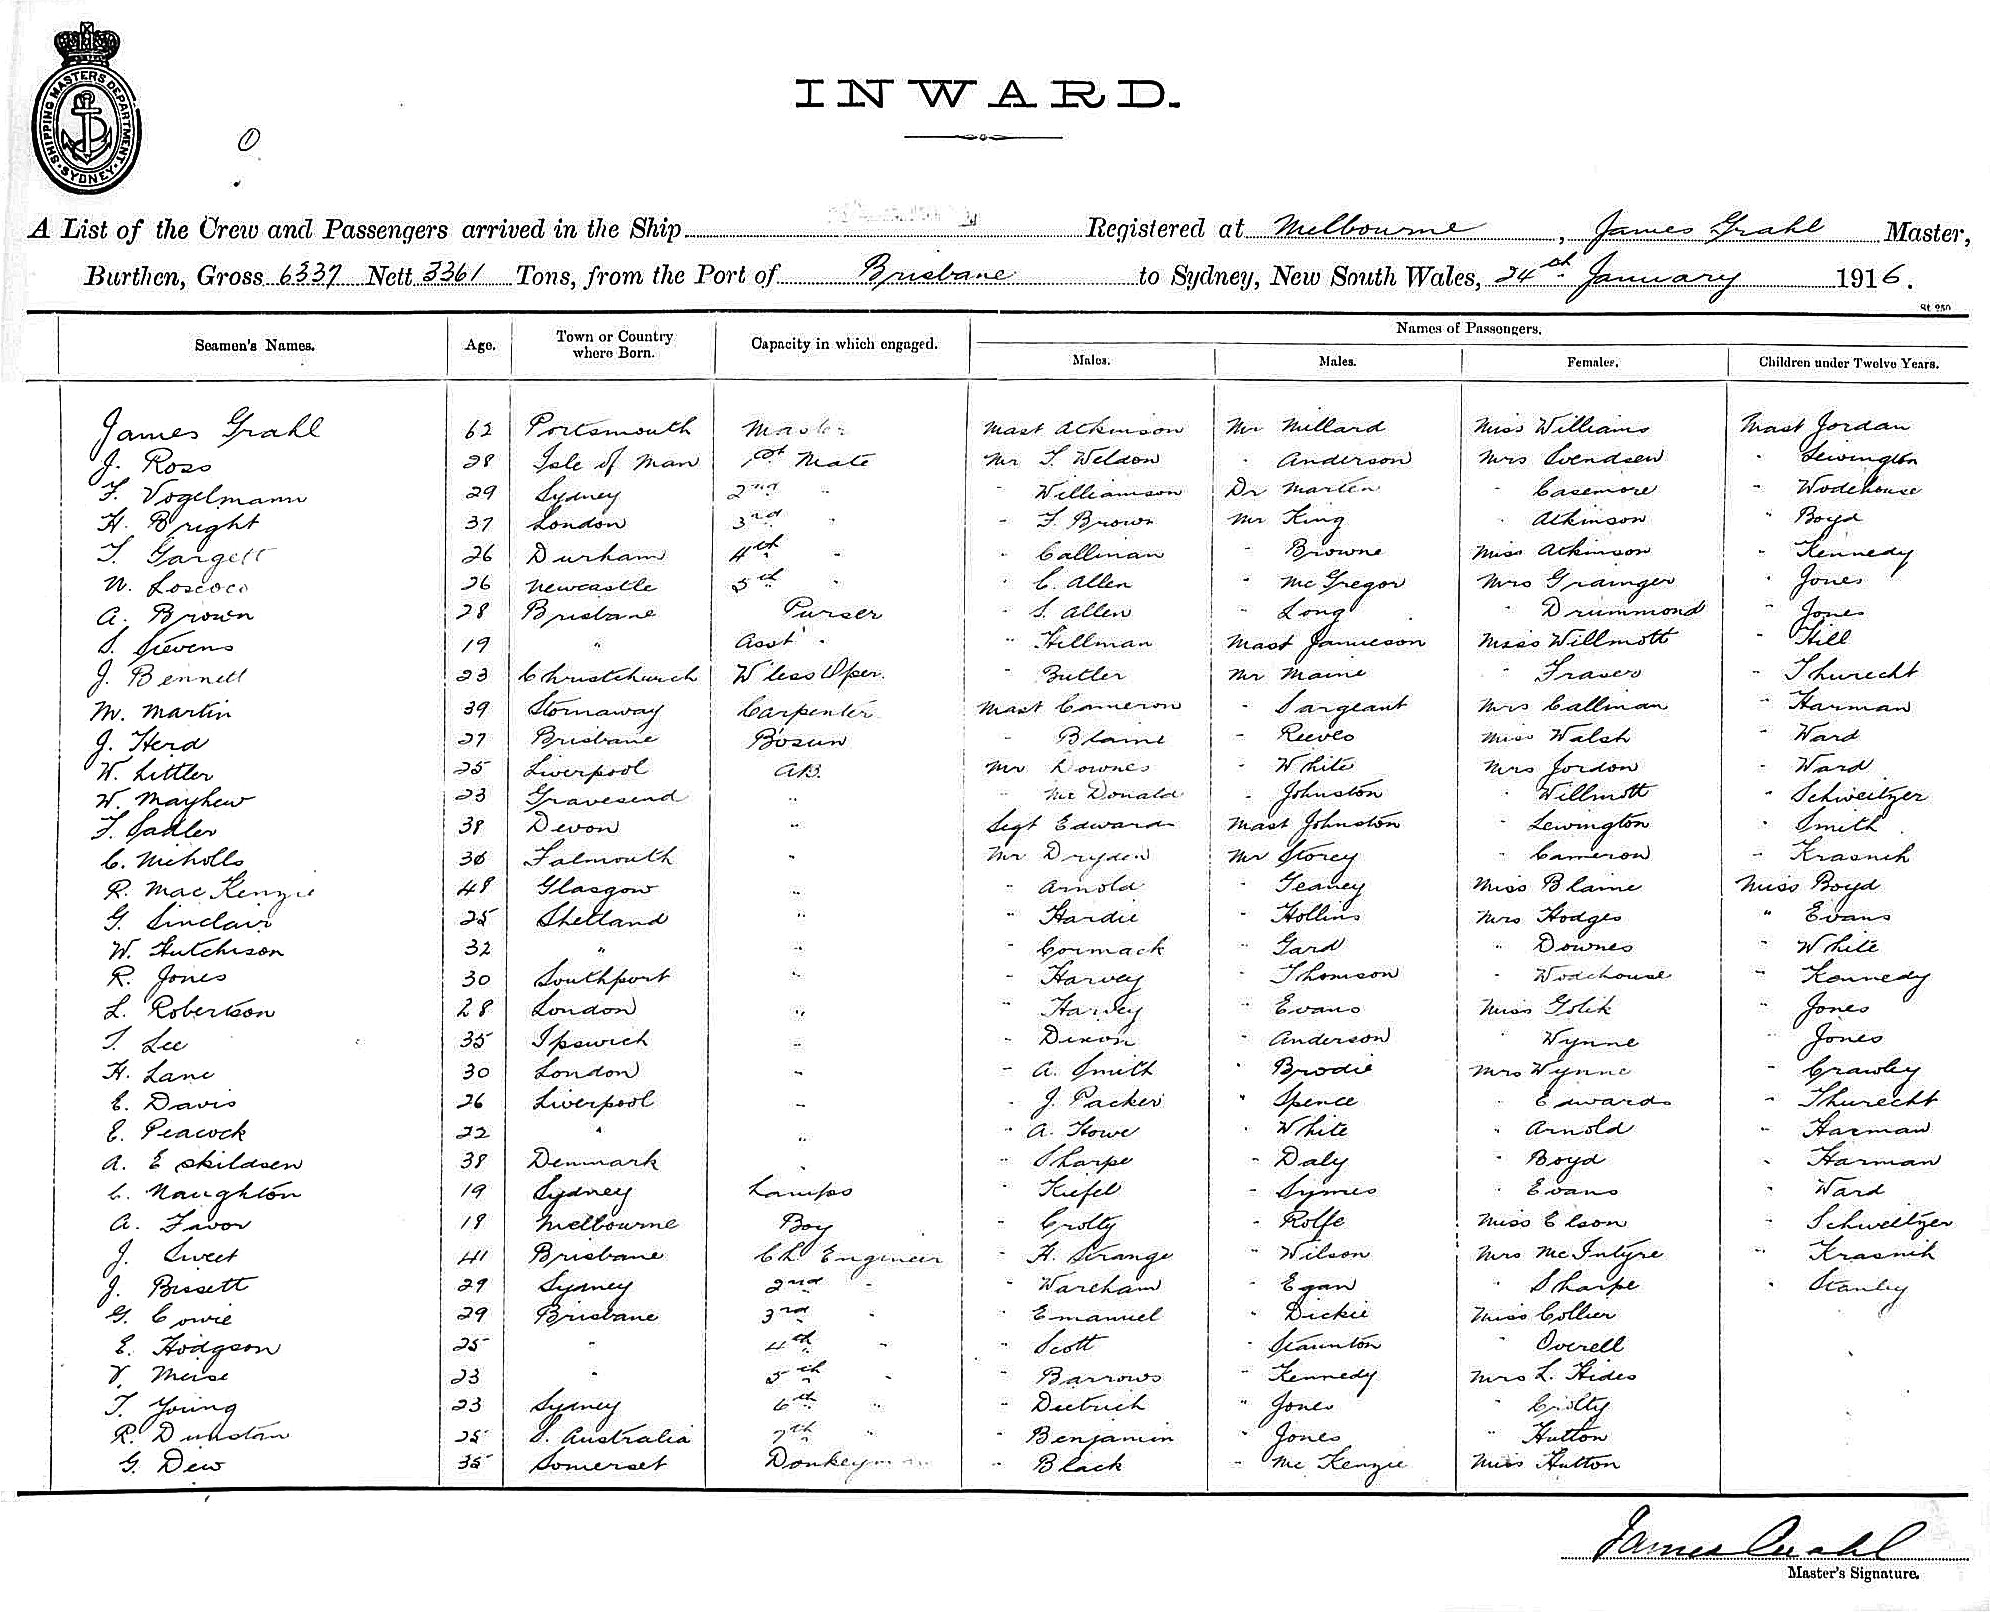 SHIPPING MASTERS DEPARTMENT. SYDNEY
INWARD.
A List of the Crew and Passengers arrived in the Ship Registered at Melbourne, James Grahl Master,
Burthen, Gross 6337 Nett 3361 Tons, from the Port of Brisbane to Sydney, New South Wales, 24th January 1916.
St 250
Names of Passengers.
Seamen's Names. Age. Town or Country where Born. Capacity in which engaged. Males. Males. Females. Children under Twelve Years.
James Grahl 62 Portsmouth Master Mast Atkinson Mr Millard Miss Williams Mast Jordan
J. Ross 28 Isle of Man 1st Mate Mr T. Weldon " Anderson Mrs Svendsen " Lewington
F. Vogelmann 29 Sydney 2nd " " Williamson Dr Marten " Casemore " Wodehouse
H. Bright 37 London 3rd " " F. Brown Mr King " Atkinson " Boyd
T. Gargett 26 Durham 4th " " Callinan " Browne Miss Atkinson " Kennedy
26 Newcastle 5th " " C. Allen " Mc Gregor Mrs Grainger " Jones
A. Brown 28 Brisbane Purser " S. Allen " Long " Drummond " Jones
S. Stevens 19 " Asst " " Hillman Mast Jamieson Miss Willmott " Hill
J. Bennett 23 Christchurch W'less Oper. " Butler Mr Maine " Fraser " Thurecht
M. Martin 39 Stornaway Carpenter Mast Cameron " Sargeant Mrs Callinan " Harman
J. Herd 27 Brisbane Bosun " Blaine " Reeves Miss Walsh " Ward
W. Littler 25 Liverpool AB. Mr Downes " White Mrs Jordon " Ward
W. Mayhew 23 Gravesend " " Mc Donald " Johnston " Willmott " Schweitzer
F. Sadler 38 Devon " Sigt Edwards Mast Johnston " Lewington " Smith
C. Nicholls 36 Falmouth " Mr Dryden Mr Storey " Cameron " Krasnik
R. Mac Kenzie 48 Glasgow " " Arnold " Geaney Miss Blaine Miss Boyd
G. Sinclair 25 Shetland " " Hardie " Hollins Mrs Hodges " Evans
W. Hutchison 32 " " " Cormack " Gard " Downes " White
R. Jones 30 Southport " " Harvey " Thomson " Wodehouse " Kennedy
L. Robertson 28 London " " Harvey " Evans Miss Golik " Jones
T. Lee 35 Ipswich " " Dixon " Anderson " Wynne " Jones
H. Lane 30 London " " A. Smith " Brodie Mrs Wynne " Crawley
E. Davis 26 Liverpool " " J. Packer " Spence " Edwards " Thurecht
E. Peacock 22 " " " A. Howe " White " Arnold " Harman
A. Eskildsen 38 Denmark " " Sharpe " Daly " Boyd " Harman
C. Naughton 19 Sydney Lamps " Kiefel " Symes " Evans " Ward
A. Favor 18 Melbourne Boy " Crotty " Rolfe Miss Elson " Schweitzer
J. Sweet 41 Brisbane Ch Engineer " H. Strange " Wilson Mrs McIntyre " Krasnik
J. Bissett 29 Sydney 2nd " " Wareham " Egan " Sharpe " Stanley
G. Cowie 29 Brisbane 3rd " " Emanuel " Dickie Miss Collier
E. Hodgson 25 " 4th " " Scott " Staunton " Overell
V. Muse 23 " 5th " " Barrows " Kennedy Mrs L. Hides
T. Young 23 Sydney 6th " " Dietrich " Jones " Crotty
R. Dunstan 25 S. Australia 7th " " Benjamin " Jones " Hutton
G. Dew 35 Somerset Donkeyman " Black " Mc Kenzie Miss Hutton
James Grahl
Master's Signature.